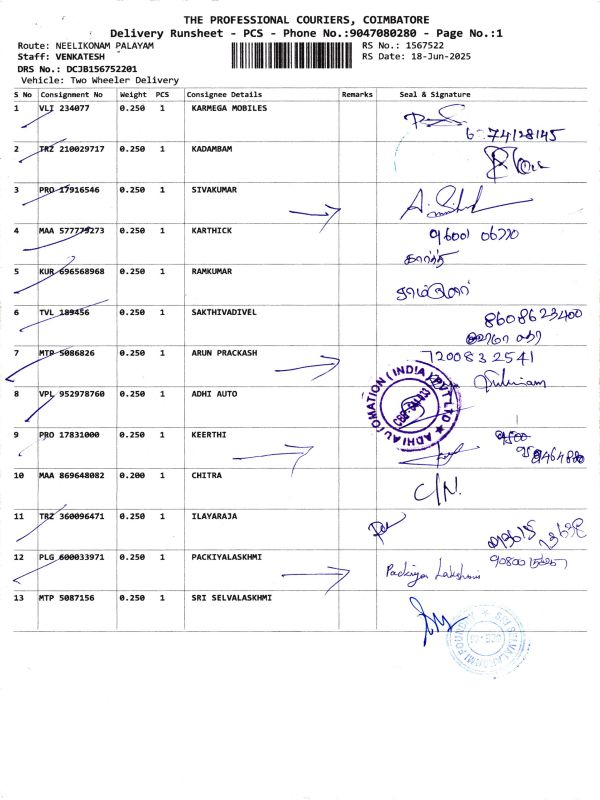 THE PROFESSIONAL COURIERS, COIMBATORE
Delivery Runsheet - PCS - Phone No.:9047080280 - Page No.:1
Route: NEELIKONAM PALAYAM RS No.: 1567522
Staff: VENKATESH RS Date: 18-Jun-2025
DRS No.: DCJB156752201
Vehicle: Two Wheeler Delivery
S No Consignment No Weight PCS Consignee Details Remarks Seal & Signature
1 VLI 234077 0.250 1 KARMEGA MOBILES
74128145
2 TRZ 210029717 0.250 1 KADAMBAM
3 PRO 17916546 0.250 1 SIVAKUMAR
4 MAA 577779273 0.250 1 KARTHICK
5 KUR 696568968 0.250 1 RAMKUMAR
6 TVL 189456 0.250 1 SAKTHIVADIVEL
8608623400
7 MTP 5086826 0.250 1 ARUN PRACKASH 7200832541
8 VPL 952978760 0.250 1 ADHI AUTO
ADHI AUTOMATION (INDIA) PVT LTD
9 PRO 17831000 0.250 1 KEERTHI
10 MAA 869648082 0.200 1 CHITRA
C/N.
11 TRZ 360096471 0.250 1 ILAYARAJA
12 PLG 600033971 0.250 1 PACKIYALASKHMI
Packiya Lakshmi
13 MTP 5087156 0.250 1 SRI SELVALASKHMI